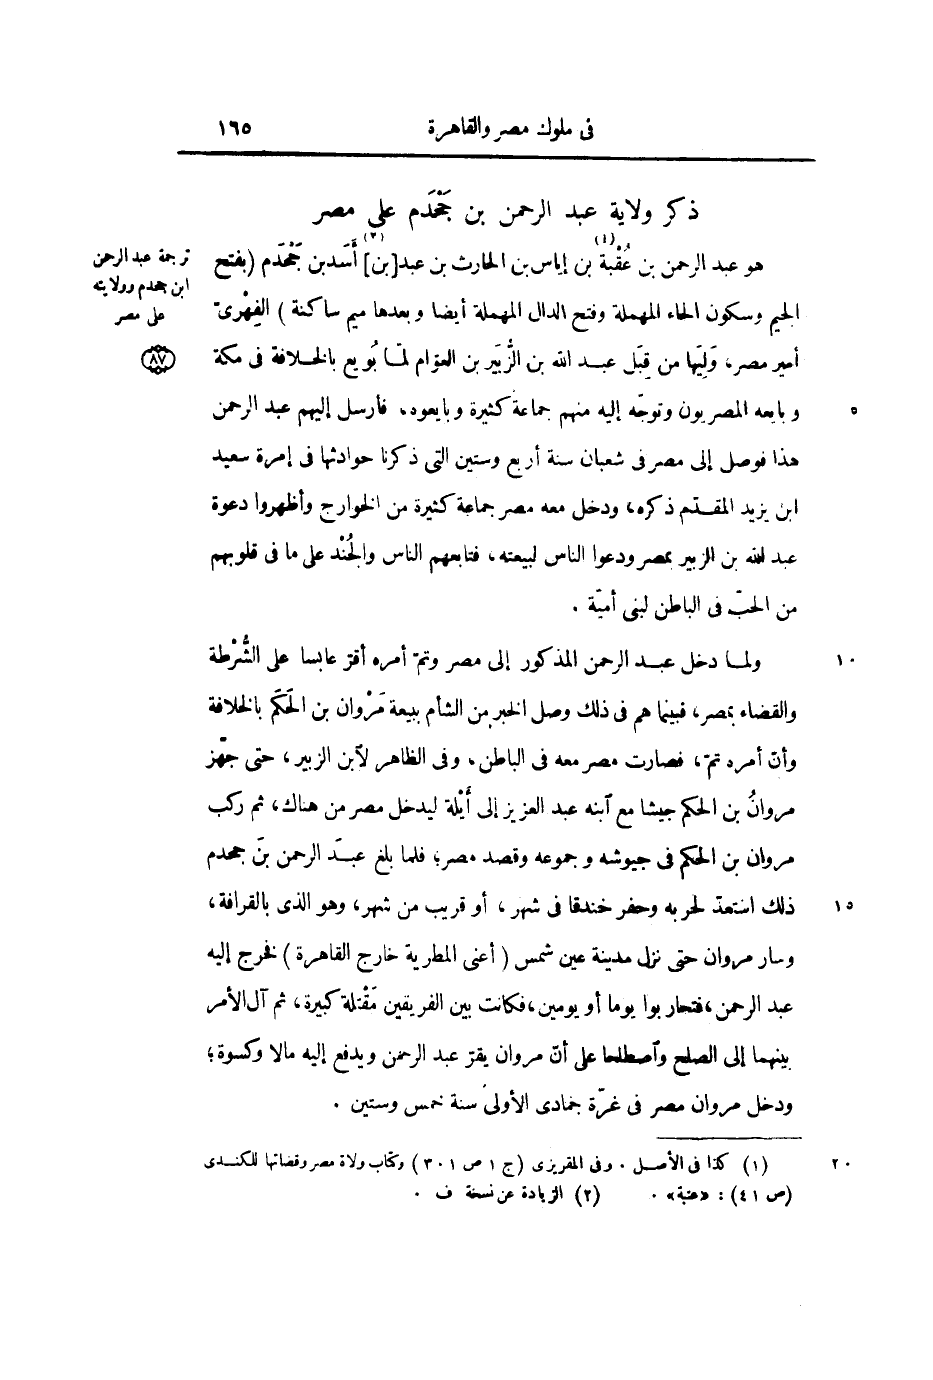 فى ملوك مصر والقاهرة ١٦٥
ذكر ولاية عبد الرحمن بن جَحْدَم على مصر
هو عبد الرحمن بن عُقْبة(١) بن إياس بن الحارث بن عبد[بن](٢) أَسَد بن جَحْدَم (بفتح
الجيم وسكون الحاء المهملة وفتح الدال المهملة أيضا وبعدها ميم ساكنة) الفِهْرىّ
أمير مصر، وَلِيَها من قِبَل عبد الله بن الزُّبَير بن العوّام لمّا بُويع بالخلافة فى مكة
وبايعه المصريون وتوجّه إليه منهم جماعة كثيرة وبايعوه، فأرسل إليهم عبد الرحمن ٥
هذا فوصل إلى مصر فى شعبان سنة أربع وستين التى ذكرنا حوادثها فى إمرة سعيد
ابن يزيد المقدّم ذكره، ودخل معه مصر جماعة كثيرة من الخوارج وأظهروا دعوة
عبد الله بن الزبير بمصر ودعوا الناس لبيعته، فتابعهم الناس والجُنْد على ما فى قلوبهم
من الحبّ فى الباطن لبنى أميّة .
ولما دخل عبد الرحمن المذكور إلى مصر وتمّ أمره أقرّ عابسا على الشُّرْطة ١٠
والقضاء بمصر، فبينما هم فى ذلك وصل الخبر من الشأم ببيعة مَرْوان بن الحَكَم بالخلافة
وأنّ أمره تمّ، فصارت مصر معه فى الباطن، وفى الظاهر لآبن الزبير، حتى جهّز
مروانُ بن الحكم جيشا مع آبنه عبد العزيز إلى أَيْلة ليدخل مصر من هناك، ثم ركب
مروان بن الحكم فى جيوشه وجموعه وقصد مصر؛ فلما بلغ عبدَ الرحمن بنَ جحدم
ذلك استعدّ لحربه وحفر خندقا فى شهر، أو قريب من شهر، وهو الذى بالقرافة، ١٥
وسار مروان حتى نزل مدينة عين شمس (أعنى المطرية خارج القاهرة) فخرج إليه
عبد الرحمن، فتحاربوا يوما أو يومين، فكانت بين الفريقين مَقْتلة كبيرة، ثم آل الأمر
بينهما إلى الصلح وآصطلحا على أنّ مروان يقرّ عبد الرحمن ويدفع إليه مالا وكسوة؛
ودخل مروان مصر فى غرّة جمادى الأولى سنة خمس وستين .
(١) كذا فى الأصل . وفى المقريزى (ج ١ ص ٣٠١) وكتاب ولاة مصر وقضاتها للكندى ٢٠
(ص ٤١): «عتبة» . (٢) الزيادة عن نسخة ف .
ترجمة عبد الرحمن
ابن جحدم وولايته
على مصر
٨٧